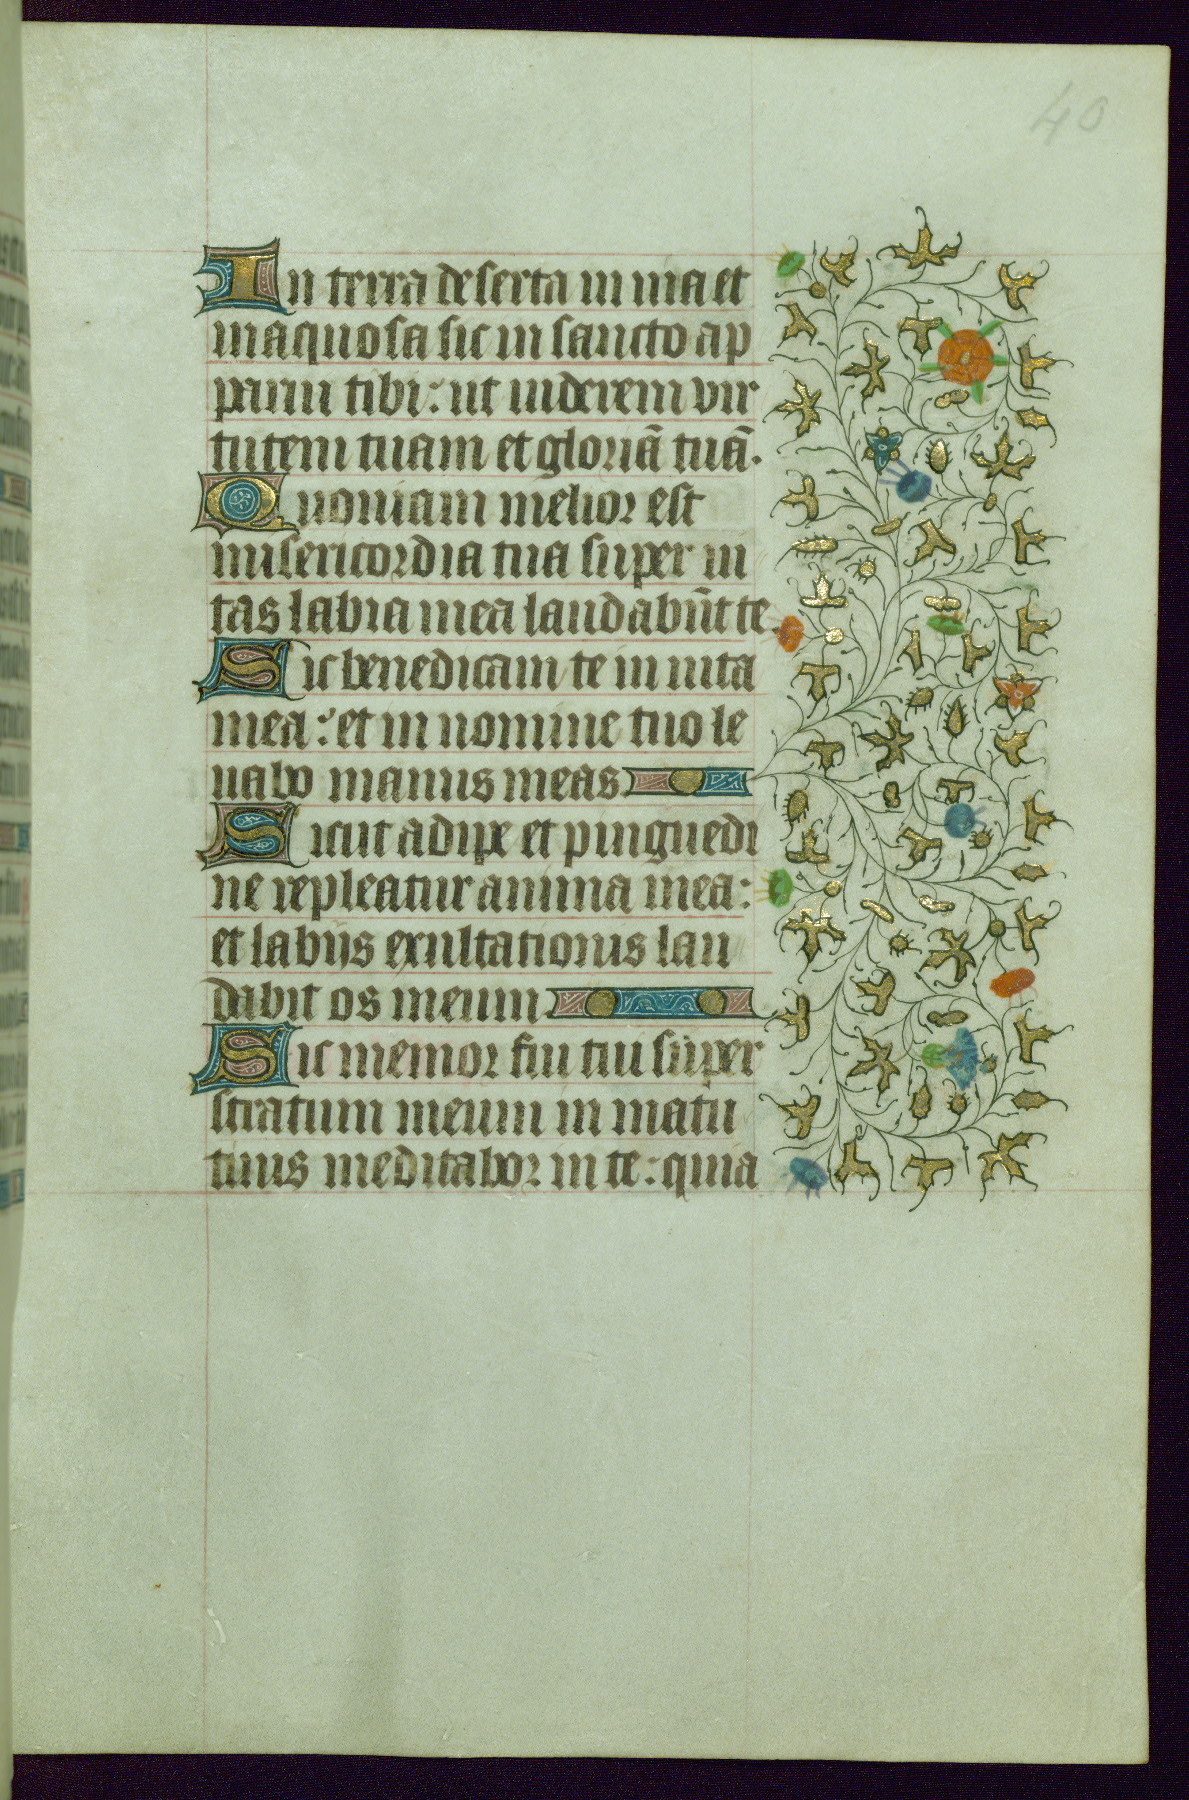 40
In terra deserta in uia et
inaquosa sic in sancto ap
parui tibi: ut uiderem vir
tutem tuam et gloriā tuā.
Quoniam melior est
misericordia tua super ui
tas labia mea laudabūt te
Sic benedicam te in uita
mea: et in nomine tuo le
uabo manus meas
Sicut adipe et pinguedi
ne repleatur anima mea:
et labijs exultationis lau
dabit os meum
Sic memor fui tui super
stratum meum in matu
tinis meditabor in te: quia